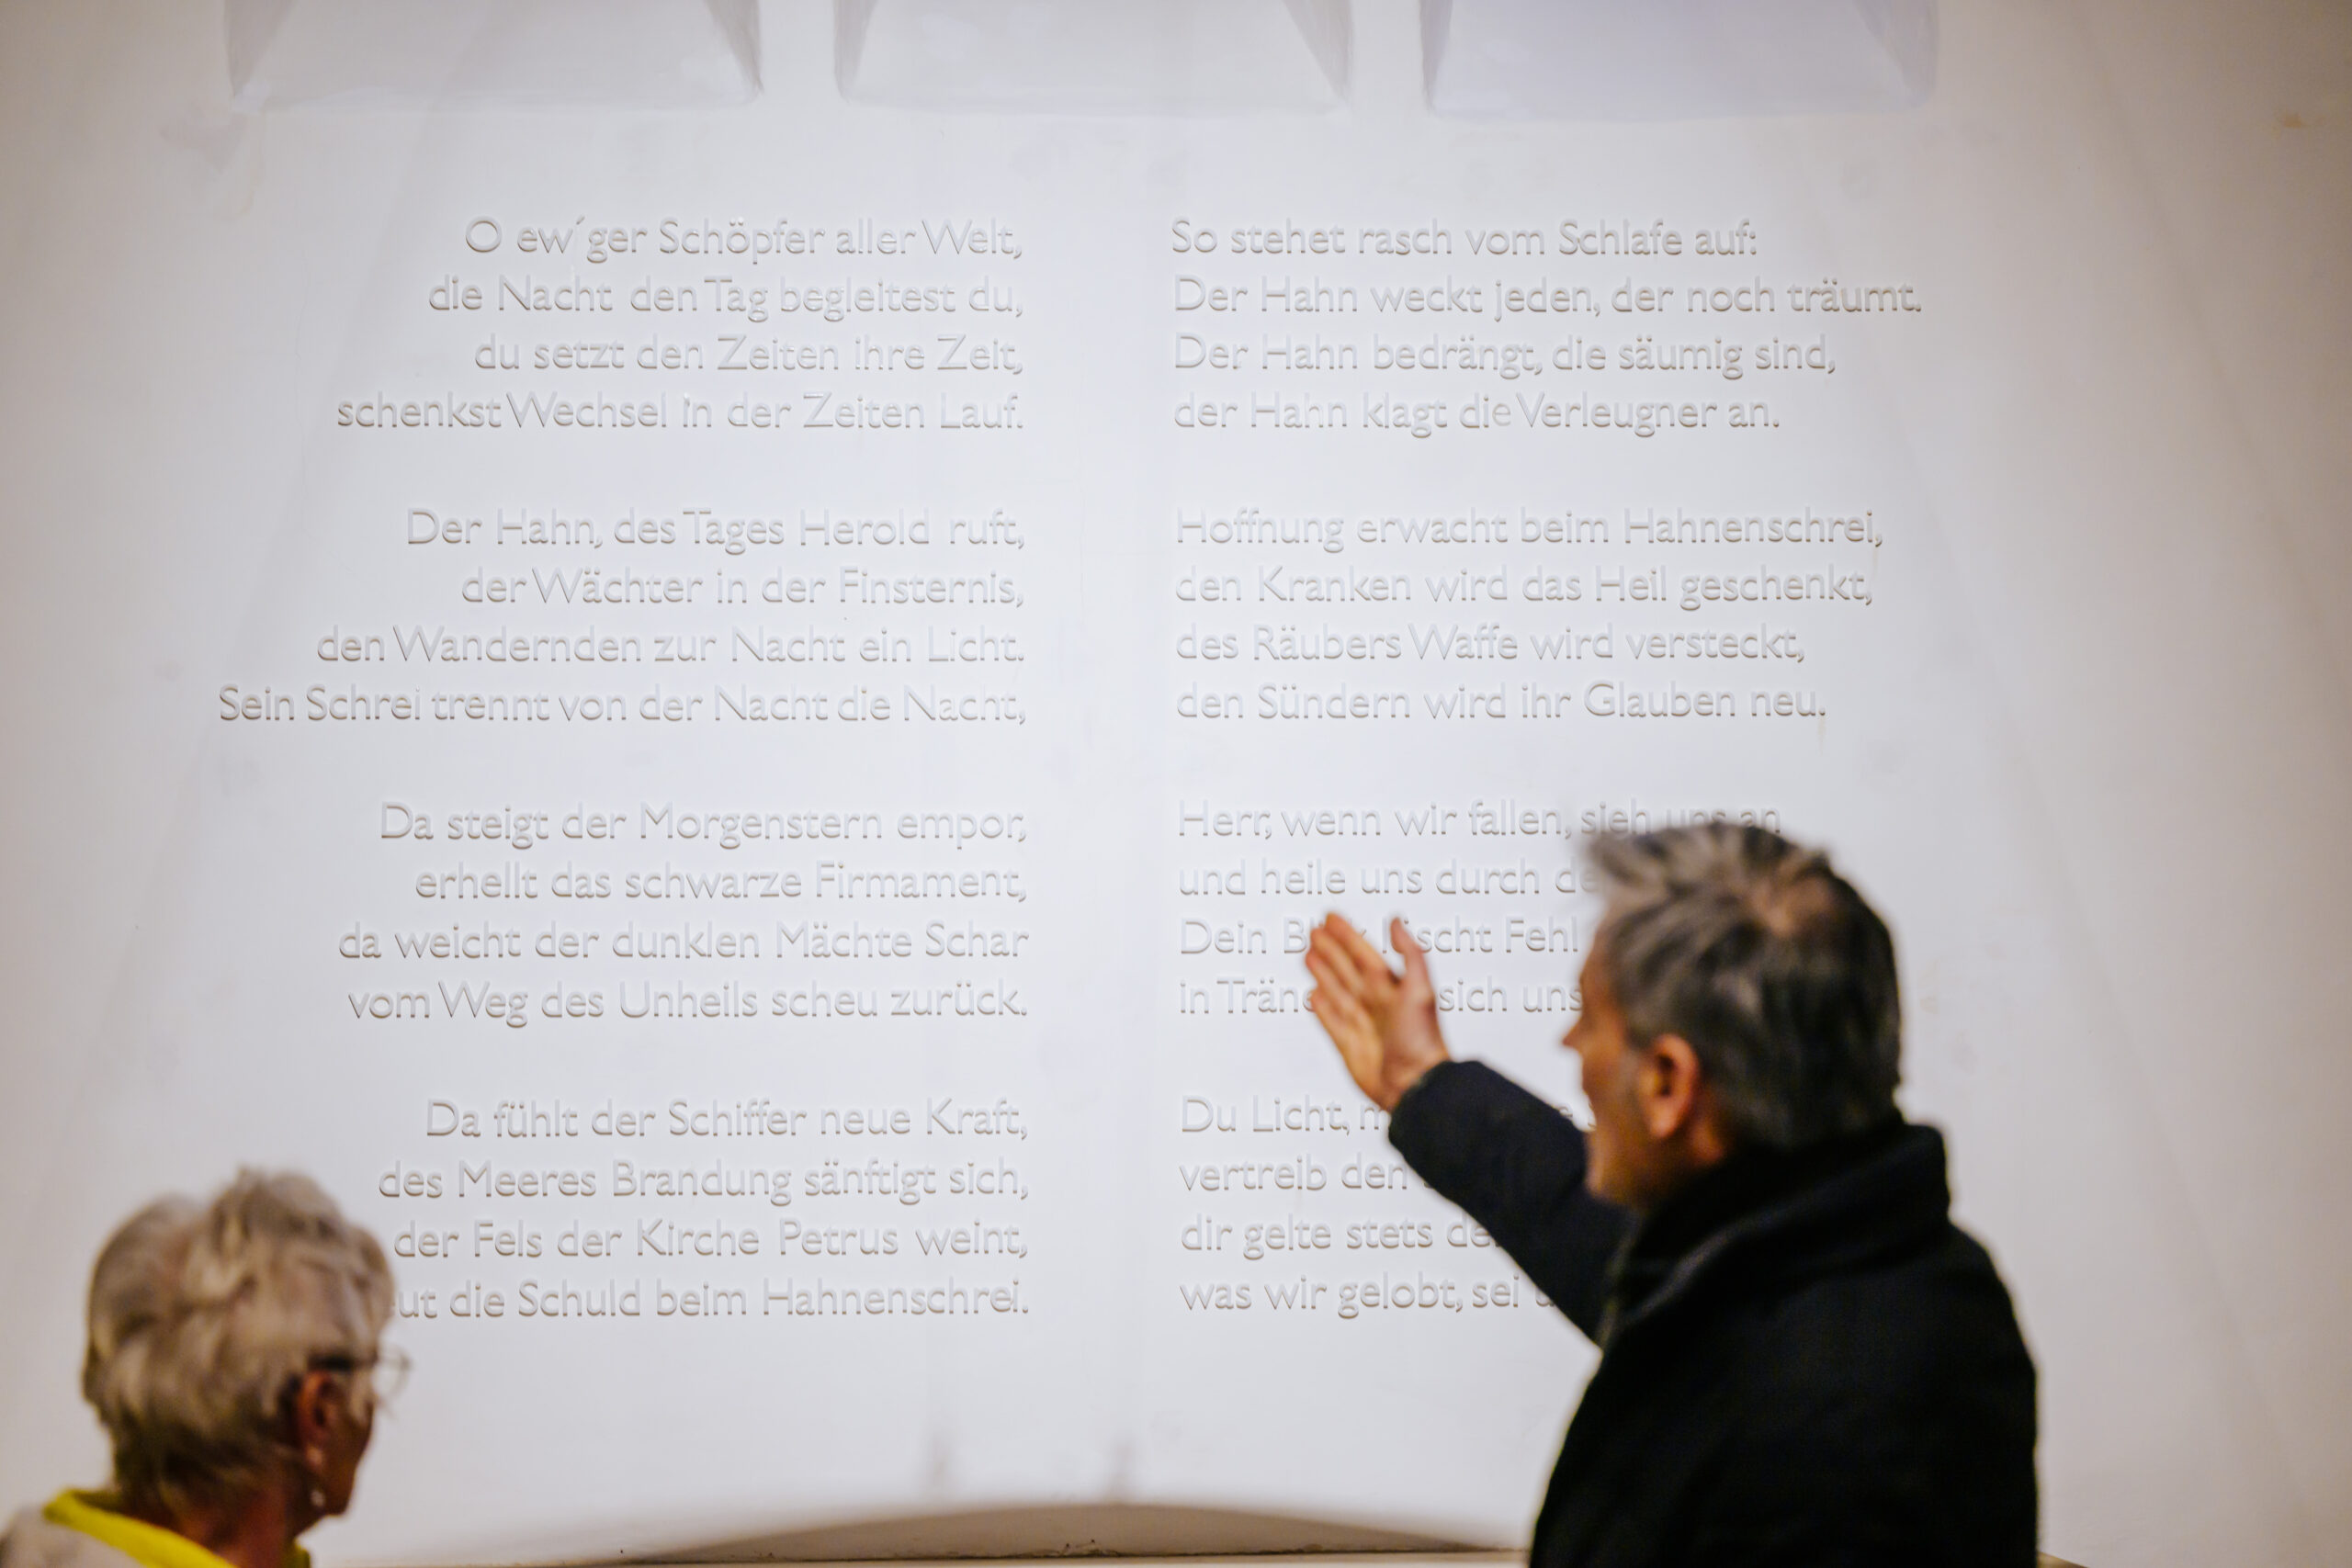 O ew´ger Schöpfer aller Welt,
die Nacht den Tag begleitest du,
du setzt den Zeiten ihre Zeit,
schenkst Wechsel in der Zeiten Lauf.
Der Hahn, des Tages Herold ruft,
der Wächter in der Finsternis,
den Wandernden zur Nacht ein Licht.
Sein Schrei trennt von der Nacht die Nacht,
Da steigt der Morgenstern empor,
erhellt das schwarze Firmament,
da weicht der dunklen Mächte Schar
vom Weg des Unheils scheu zurück.
Da fühlt der Schiffer neue Kraft,
des Meeres Brandung sänftigt sich,
der Fels der Kirche Petrus weint,
die Schuld beim Hahnenschrei.
So stehet rasch vom Schlafe auf:
Der Hahn weckt jeden, der noch träumt.
Der Hahn bedrängt, die säumig sind,
der Hahn klagt die Verleugner an.
Hoffnung erwacht beim Hahnenschrei,
den Kranken wird das Heil geschenkt,
des Räubers Waffe wird versteckt,
den Sündern wird ihr Glauben neu.
Herr, wenn wir fallen, sieh uns an
und heile uns durch
Dein löscht Fehl
in sich
Du Licht,
vertreib den
dir gelte stets
was wir gelobt, sei